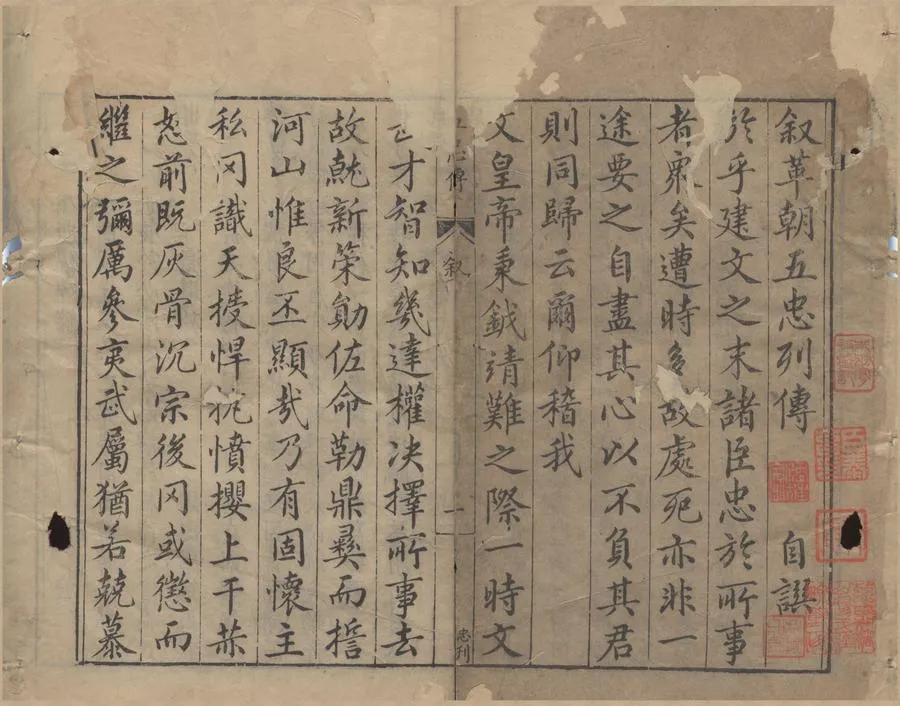 叙革朝五忠列傳 自譔
於乎建文之末諸臣忠於所事
者衆矣遭時多故處死亦非一
途要之自盡其心以不負其君
則同歸云爾仰稽我
文皇帝秉鉞靖難之際一時文
忠傳 叙 一 忠刊
才智知幾達權决擇所事去
故就新策勛佐命勒鼎彝而誓
河山惟良丕顯哉乃有固懷主
私冈識天授悍
憤攖上干
前既灰骨沉宗後冈或懲而
繼之彌厲參夷
屬猶若兢慕